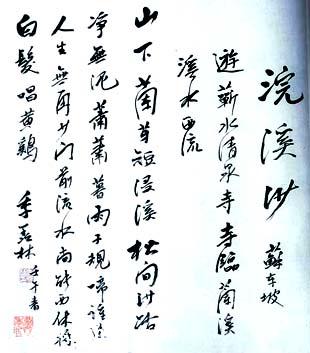 浣溪沙 蘇东坡
遊蘄水清泉寺寺臨蘭溪
溪水西流
山下蘭芽短浸溪松间沙路
净無泥蕭蕭暮雨子規啼誰道
人生無再少门前流水尚能西休将
白髮唱黄鷄 季羡林 壬午春